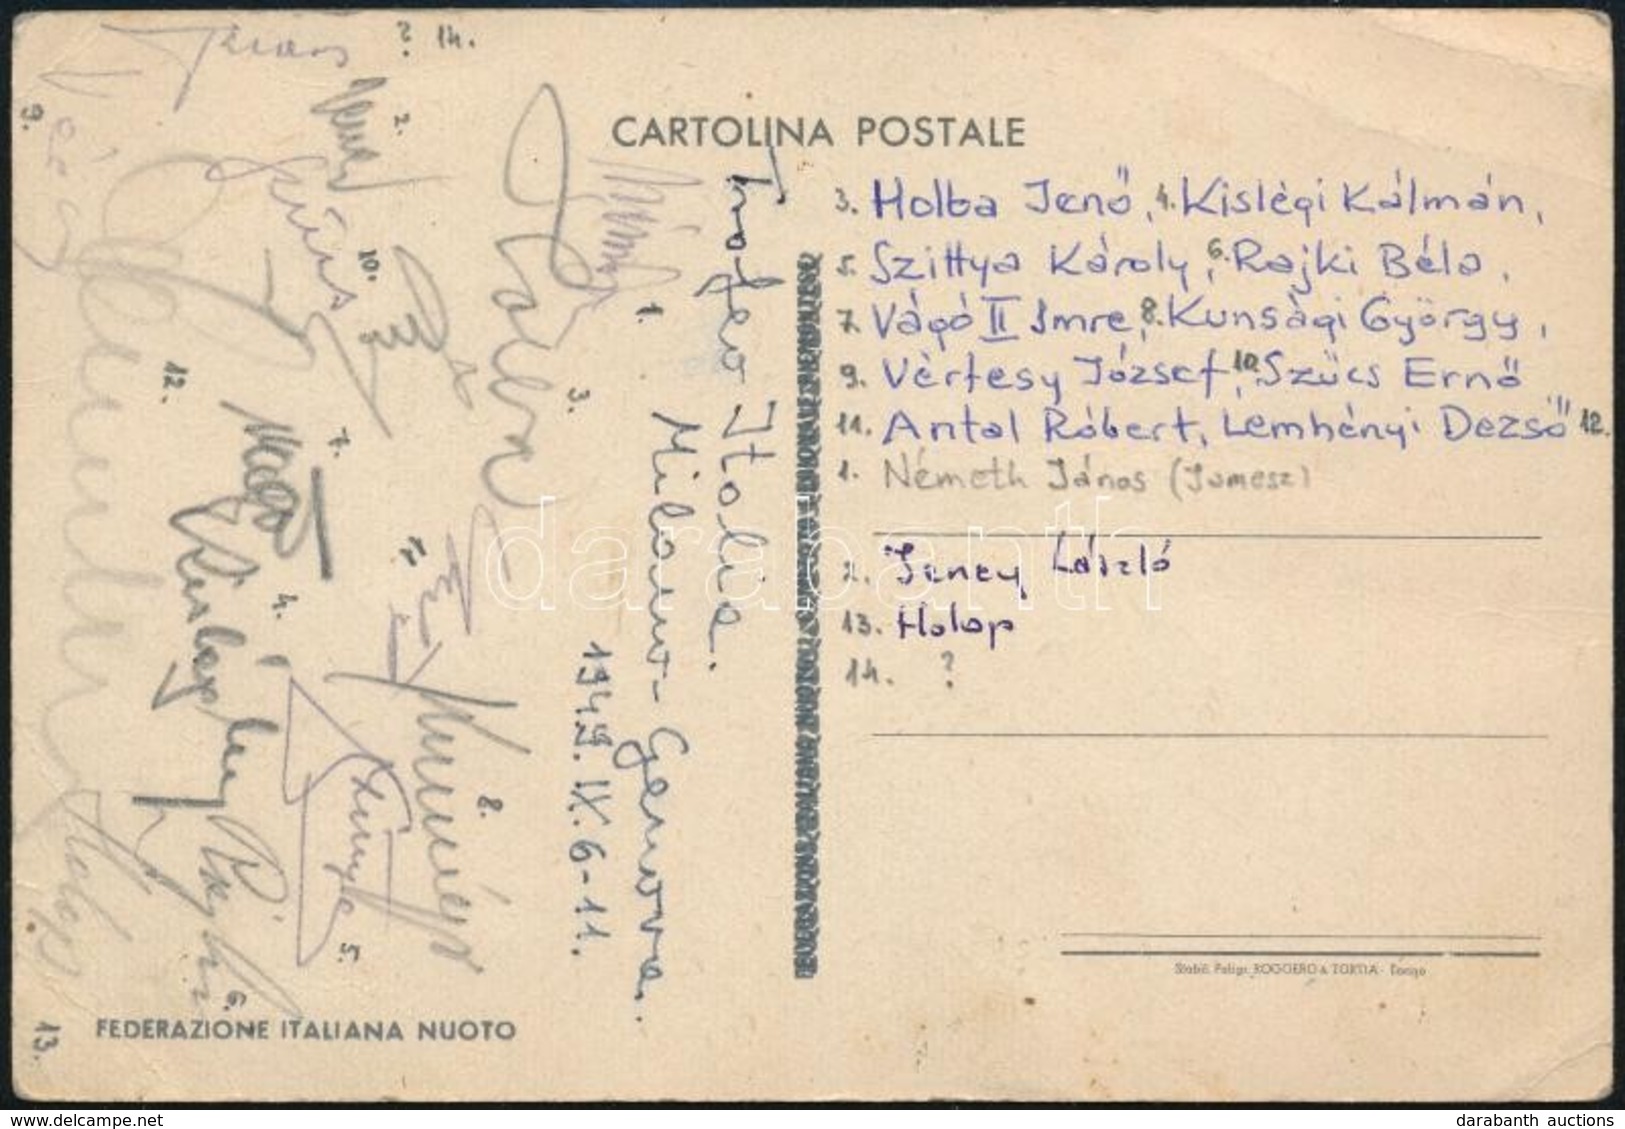 ? 14.
2.
9.
CARTOLINA POSTALE
3. Holba Jenő, 4. Kislégi Kálmán,
5. Szittya Károly, 6. Rajki Béla,
7. Vágó II Imre, 8. Kunsági György,
9. Vértesy József, 10. Szűcs Ernő
11. Antal Róbert, Lemhényi Dezső 12.
1. Németh János (Jamesz)
2. Jeney László
13. Holop
14. ?
Trofeo Italia.
Milano-Genova.
1949. IX. 6-11.
1.
3.
10.
7.
12.
4.
11.
8.
5.
6.
13.
FEDERAZIONE ITALIANA NUOTO
Stabil. Poligr. ROGGERO & TORTIA - Torino
darabanth
darabanth auctions